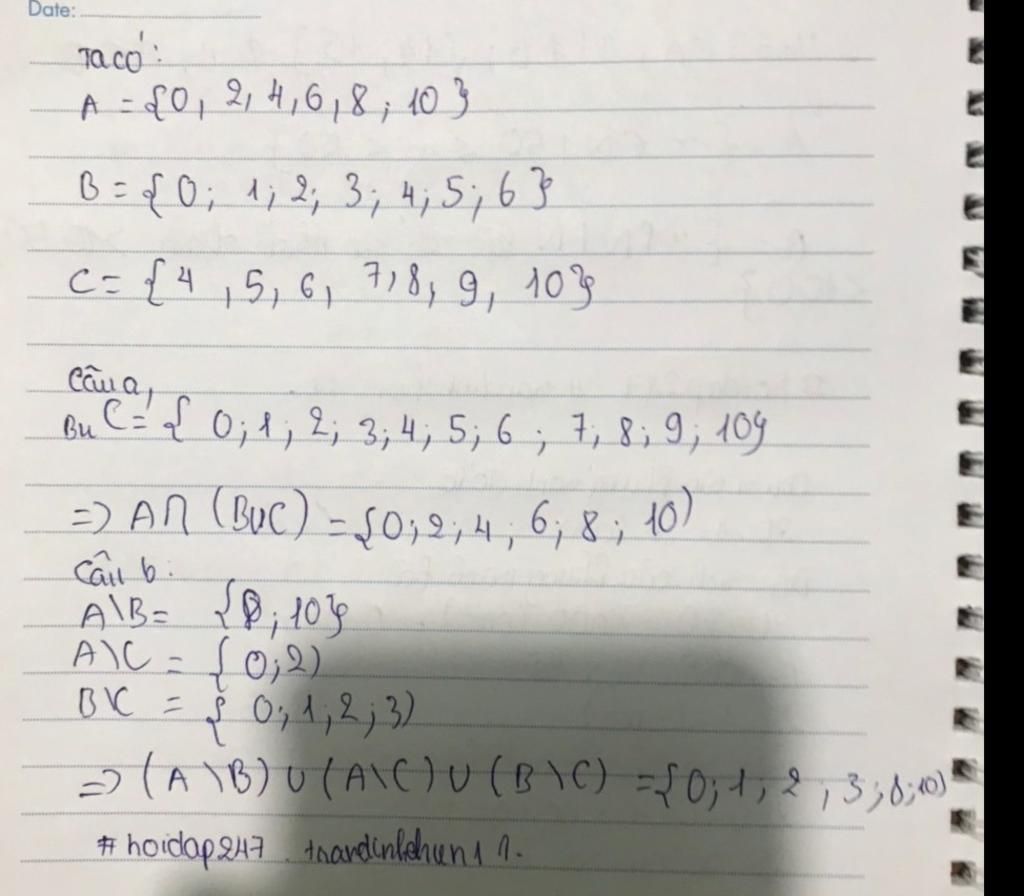 Date:
Ta có:
A = {0, 2, 4, 6, 8; 10}
B = {0; 1; 2; 3; 4; 5; 6}
C = {4, 5, 6, 7, 8, 9, 10}
Câu a,
BuC = { 0; 1; 2; 3; 4; 5; 6; 7; 8; 9; 10}
=> A∩ (BUC) = {0; 2; 4; 6; 8; 10)
Câu b:
A\B = {8; 10}
A\C = { 0; 2)
B\C = { 0; 1; 2; 3)
=> (A\B) U (A\C) U (B\C) = {0; 1; 2; 3; 8; 10)
#hoidap247.